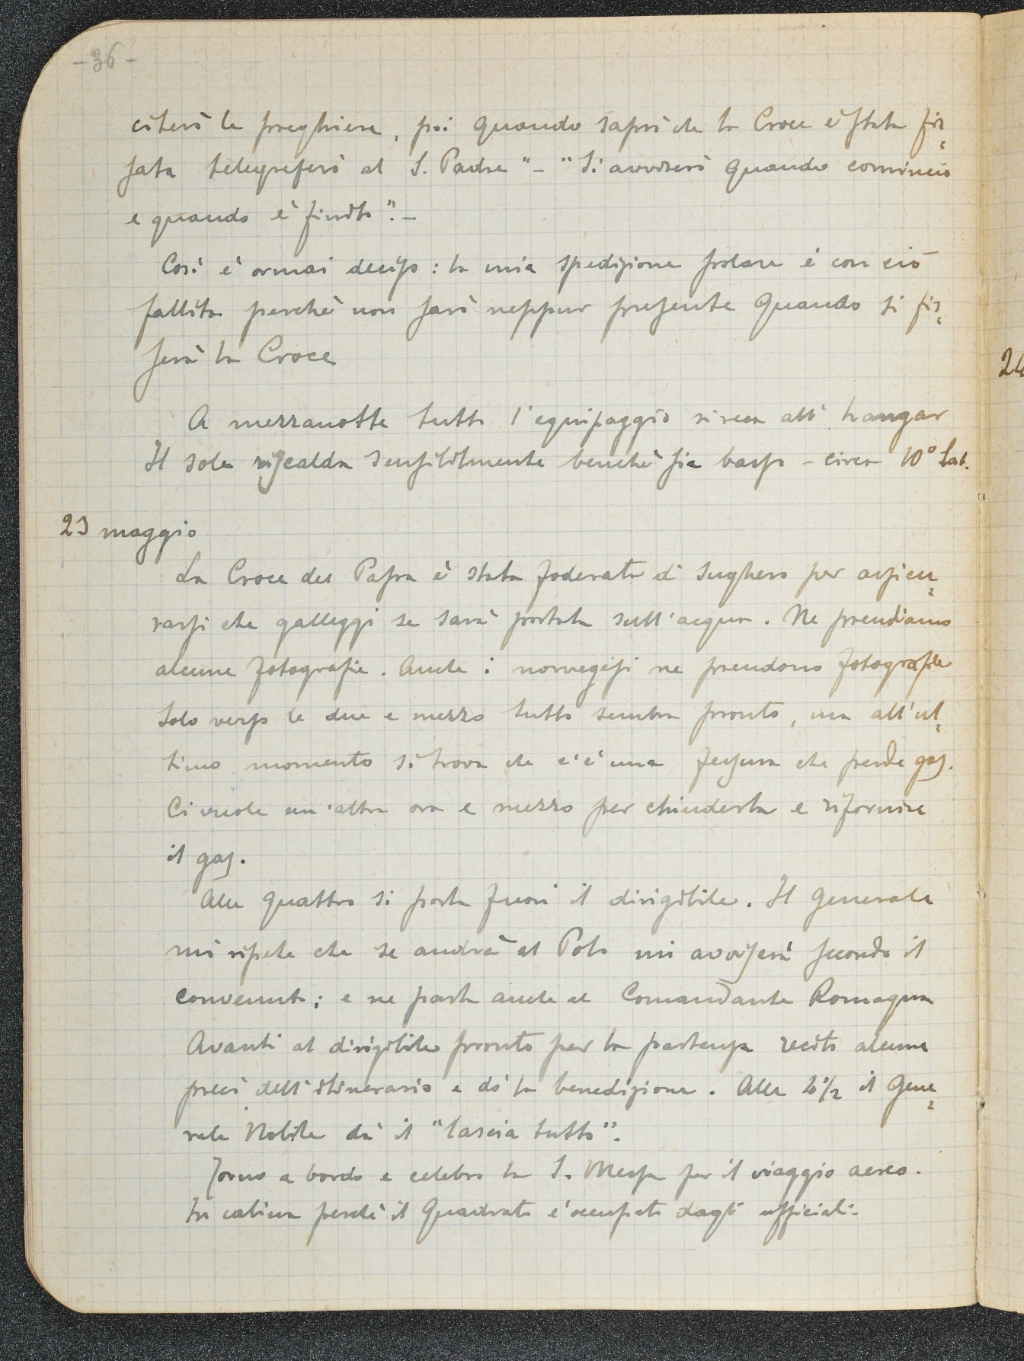 - 36 -
citerà le preghiere, poi quando saprà che la Croce è stata fis=
sata telegraferà al S. Padre" - "Si avviserà quando comincio
e quando è finito". -
Così è ormai deciso: la mia spedizione polare è con ciò
fallita perchè non sarò neppur presente quando si fis=
serà la Croce
A mezzanotte tutto l'equipaggio si reca all'hangar
Il sole riscalda sensibilmente benchè sia basso - circa 10°
23 maggio
La Croce del Papa è stata foderata di sughero per assicu=
rarsi che galleggi se sarà portata sull'acqua. Ne prendiamo
alcune fotografie. Anche i norvegesi ne prendono fotografie
Solo verso le due e mezzo tutto sembra pronto, ma all'ul=
timo momento si trova che c'è una fessura che perde gas.
Ci vuole un'altra ora e mezzo per chiuderla e rifornire
il gas.
Alle quattro si porta fuori il dirigibile. Il Generale
mi ripete che se andrà al Polo mi avviserà secondo il
convenuto; e ne parla anche al Comandante Romagna
Avanti al dirigibile pronto per la partenza recito alcune
preci dell'itinerario e dò la benedizione. Alle 4½ il Gene=
rale Nobile dà il "lascia tutto".
Torno a bordo e celebro la S. Messa per il viaggio aereo.
In cabina perchè il Quadrato è occupato dagli ufficiali.
24